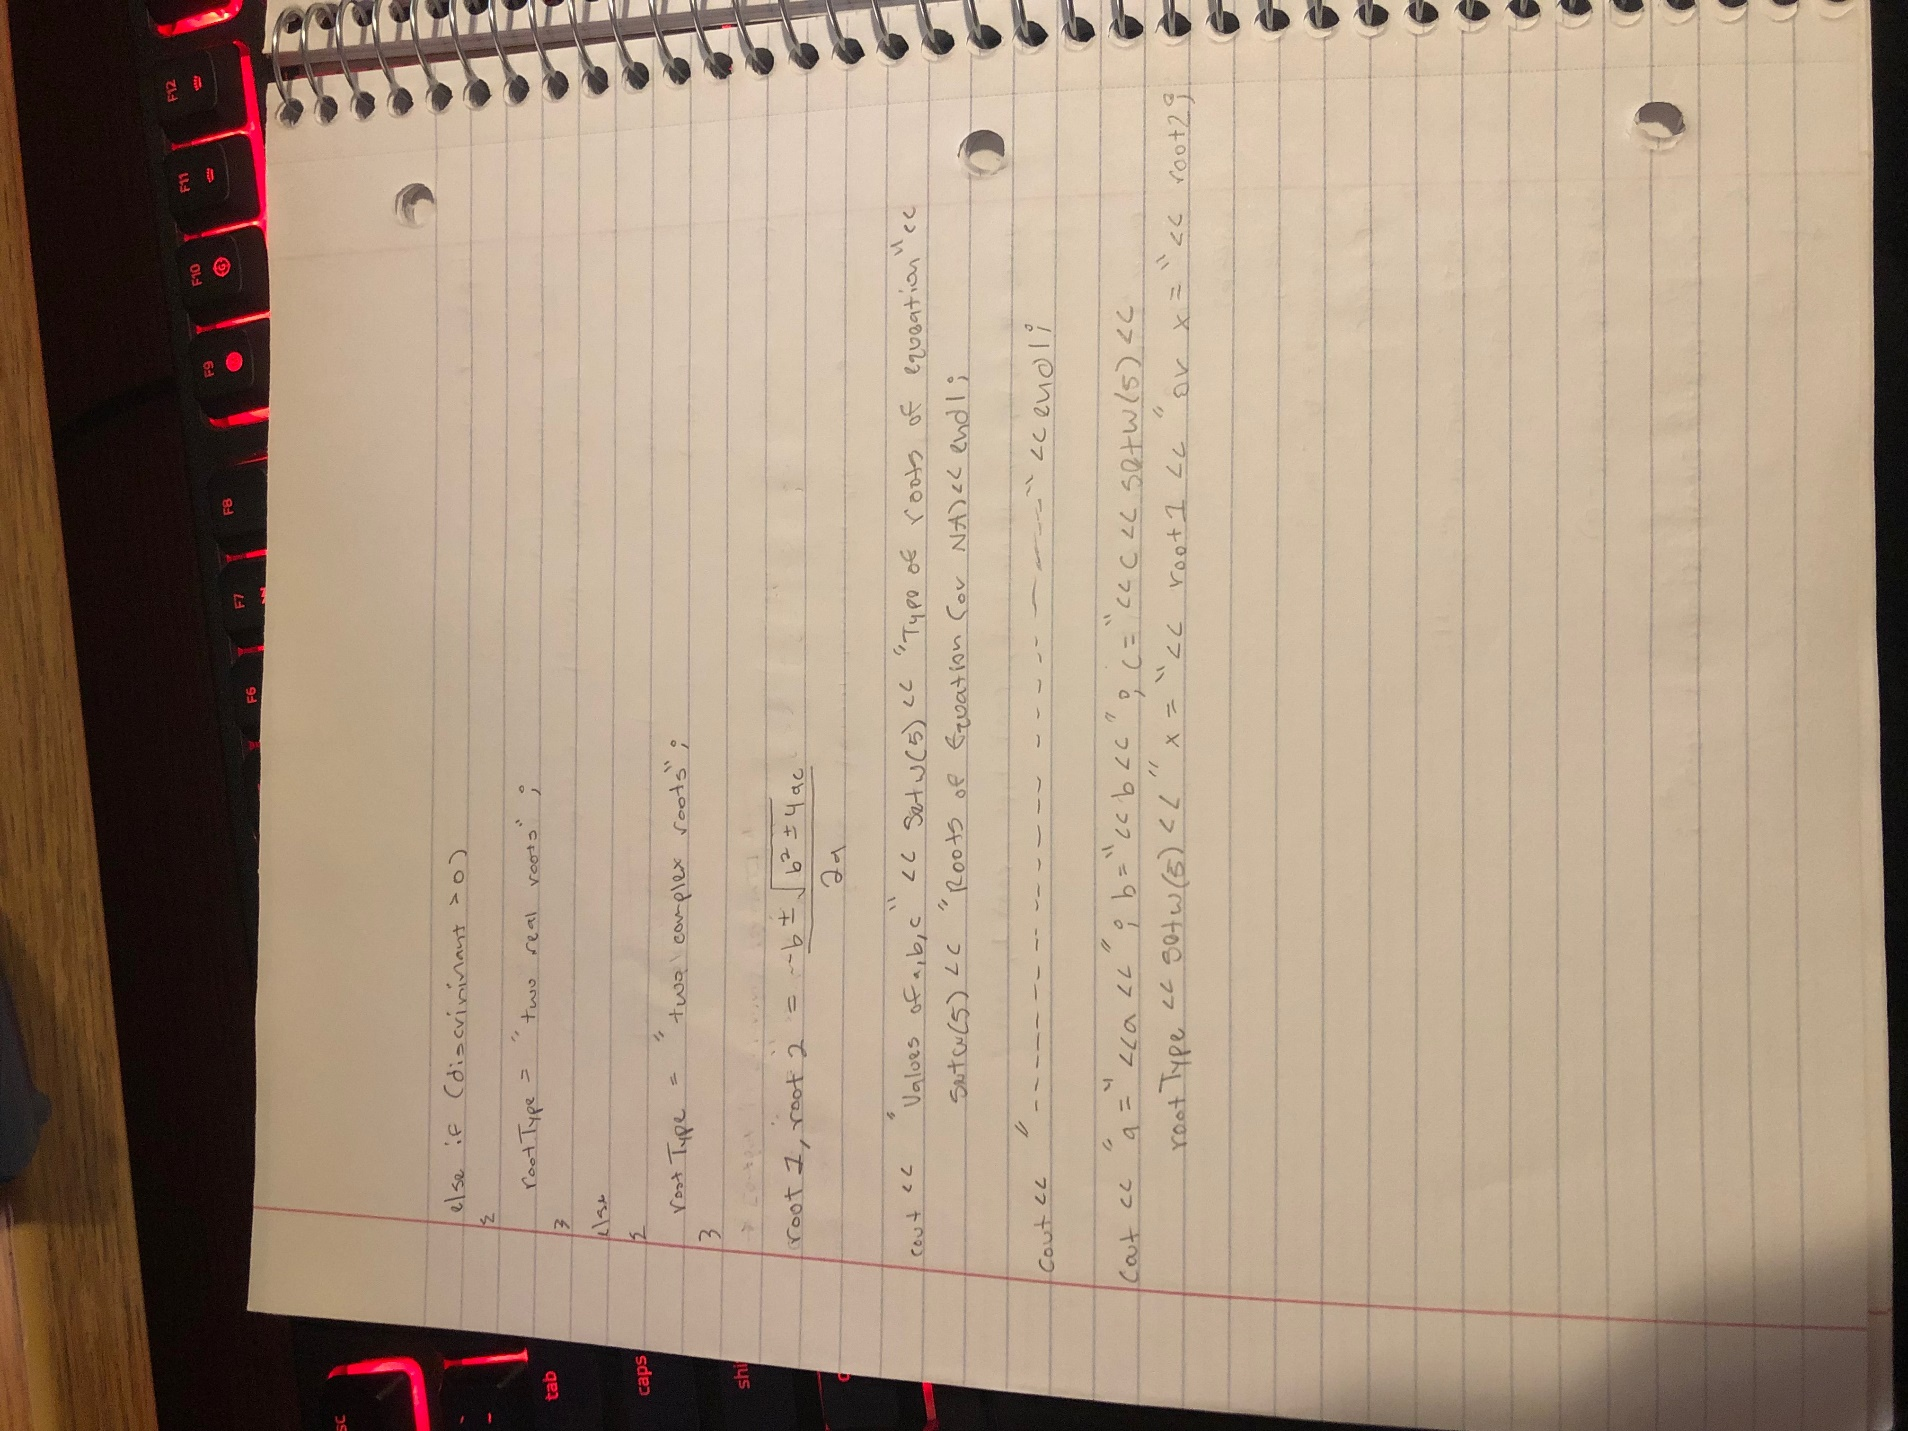 else if (discriminant > 0)
{
rootType = "two real roots";
}
else
{
rootType = "two complex roots";
}
root 1, root 2 = -b ± √b² ± 4ac
2a
cout << "Values of a,b,c" << setw(5) << "Type of roots of equation" <<
setw(5) << "Roots of Equation (or NA) << endl;
cout << "--------------------" << endl;
cout << "a=" << a << "; b=" << b << "; c=" << c << setw(5) <<
rootType << setw(5) << "x=" << root1 << "or x=" << root2;
F12
F11
F10
F9
F8
F7
F6
sc
tab
caps
shi